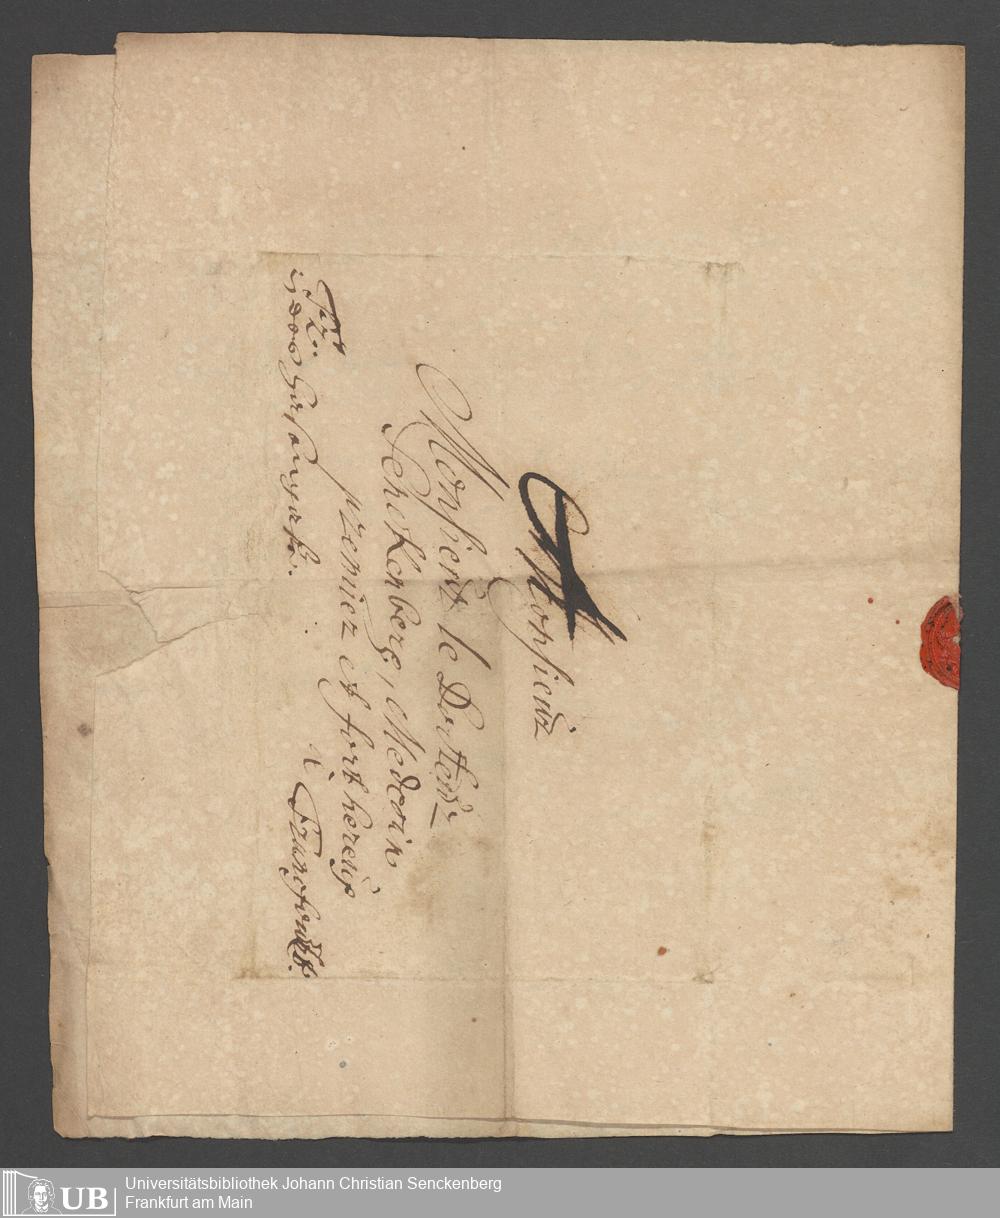 A Monsieur
Monsieur le Docteur
Senckenberg, Medecin
premier et fort hereux
à Francfourt.
Universitätsbibliothek Johann Christian Senckenberg
Frankfurt am Main
UB